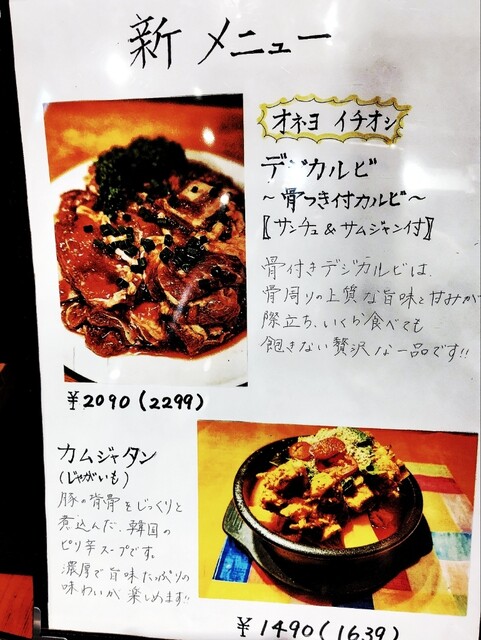 新メニュー
オネヨ イチオシ
デジカルビ
～骨つき付カルビ～
〖サンチュ&サムジャン付〗
骨付きデジカルビは、
骨周りの上質な旨味と甘みが
際立ち、いくら食べても
飽きない贅沢な一品です!!
¥2090(2299)
カムジャタン
(じゃがいも)
豚の背骨をじっくりと
煮込んだ、韓国の
ピリ辛スープです。
濃厚で旨味たっぷりの
味わいが楽しめます!!
¥1490(1639)